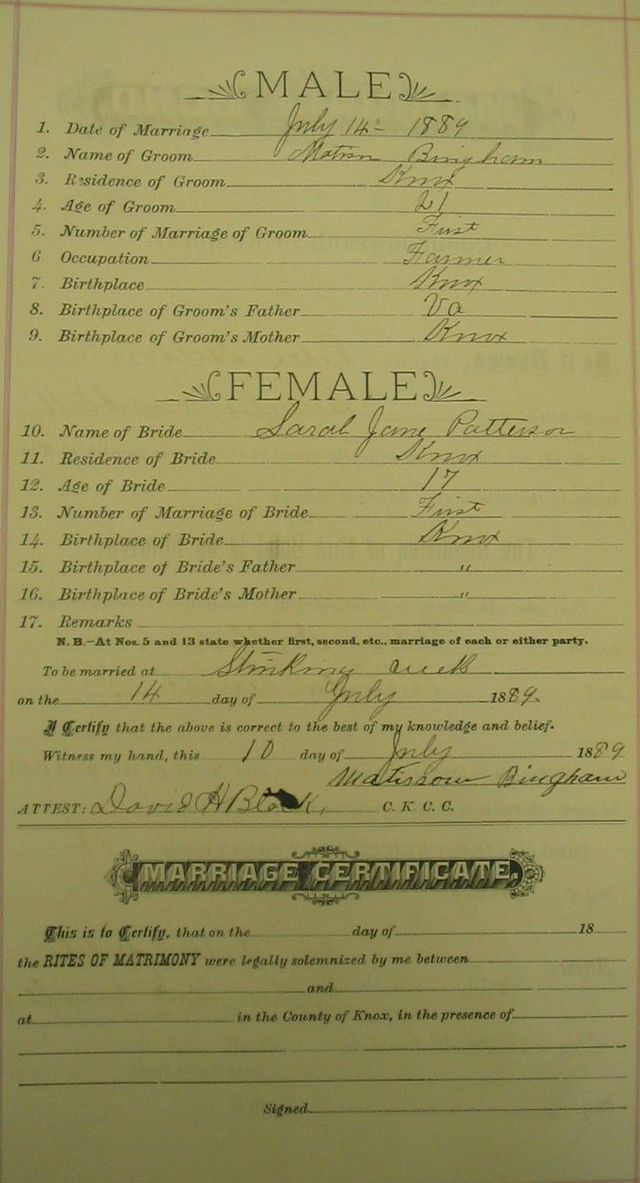 MALE
1. Date of Marriage July 14- 1889
2. Name of Groom Bingham
3. Residence of Groom Knox
4. Age of Groom 21
5. Number of Marriage of Groom First
6 Occupation Farmer
7. Birthplace Knox
8. Birthplace of Groom's Father Va
9. Birthplace of Groom's Mother Knox
FEMALE
10. Name of Bride Sarah Jane Patterson
11. Residence of Bride Knox
12. Age of Bride 17
13. Number of Marriage of Bride First
14. Birthplace of Bride Knox
15. Birthplace of Bride's Father "
16. Birthplace of Bride's Mother "
17. Remarks
N. B.—At Nos. 5 and 13 state whether first, second, etc., marriage of each or either party.
To be married at Stinking creek
on the 14 day of July 1889.
I Certify that the above is correct to the best of my knowledge and belief.
Witness my hand, this 10 day of July 1889
Bingham
ATTEST: David H Black, C. K. C. C.
MARRIAGE CERTIFICATE.
This is to Certify, that on the day of 18
the RITES OF MATRIMONY were legally solemnized by me between
and
at in the County of Knox, in the presence of
Signed